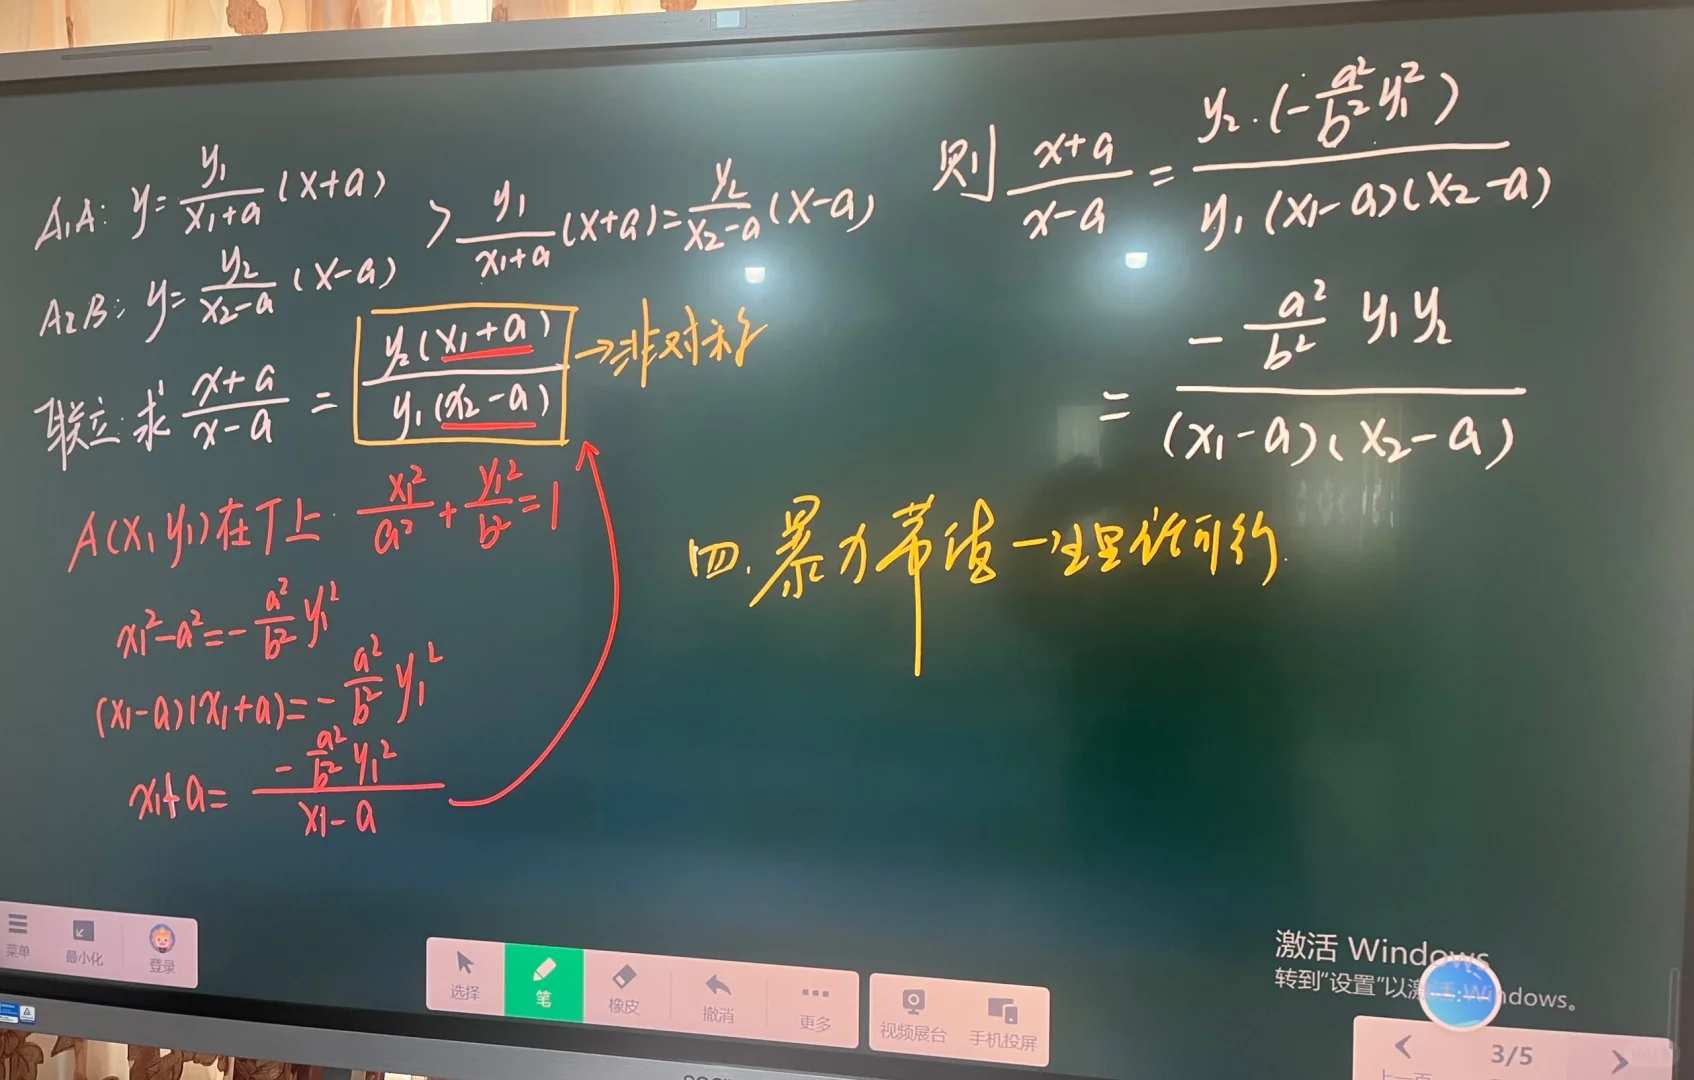 A₁A: y = y₁/(x₁+a) (x+a)
A₂B: y = y₂/(x₂-a) (x-a)
> y₁/(x₁+a) (x+a) = y₂/(x₂-a) (x-a)
联立: 求 (x+a)/(x-a) = y₂(x₁+a)/y₁(x₂-a) → 非对称
A(x₁ y₁)在T上 x₁²/a² + y₁²/b² = 1
x₁²-a² = -a²/b² y₁²
(x₁-a)(x₁+a) = -a²/b² y₁²
x₁+a = (-a²/b² y₁²)/(x₁-a)
则 (x+a)/(x-a) = y₂·(-a²/b² y₁²)/y₁(x₁-a)(x₂-a)
= (-a²/b² y₁y₂)/(x₁-a)(x₂-a)
四. 暴力带值一
菜单
最小化
登录
选择
笔
橡皮
撤消
更多
视频展台
手机投屏
激活 Windows
转到“设置”以激活 Windows。
3/5
上一页